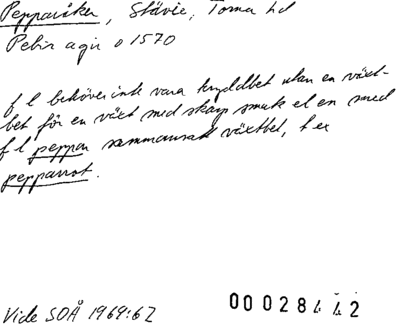 Pepparåker, Stävie, Torna hd
Peder agir o 1570
f l behöver inte vara kryddbet utan en växt-
bet för en växt med skarp smak el en med
f l peppar sammansatt växtbet, t ex
pepparrot.
Vide SOÅ 1969:62
0028442